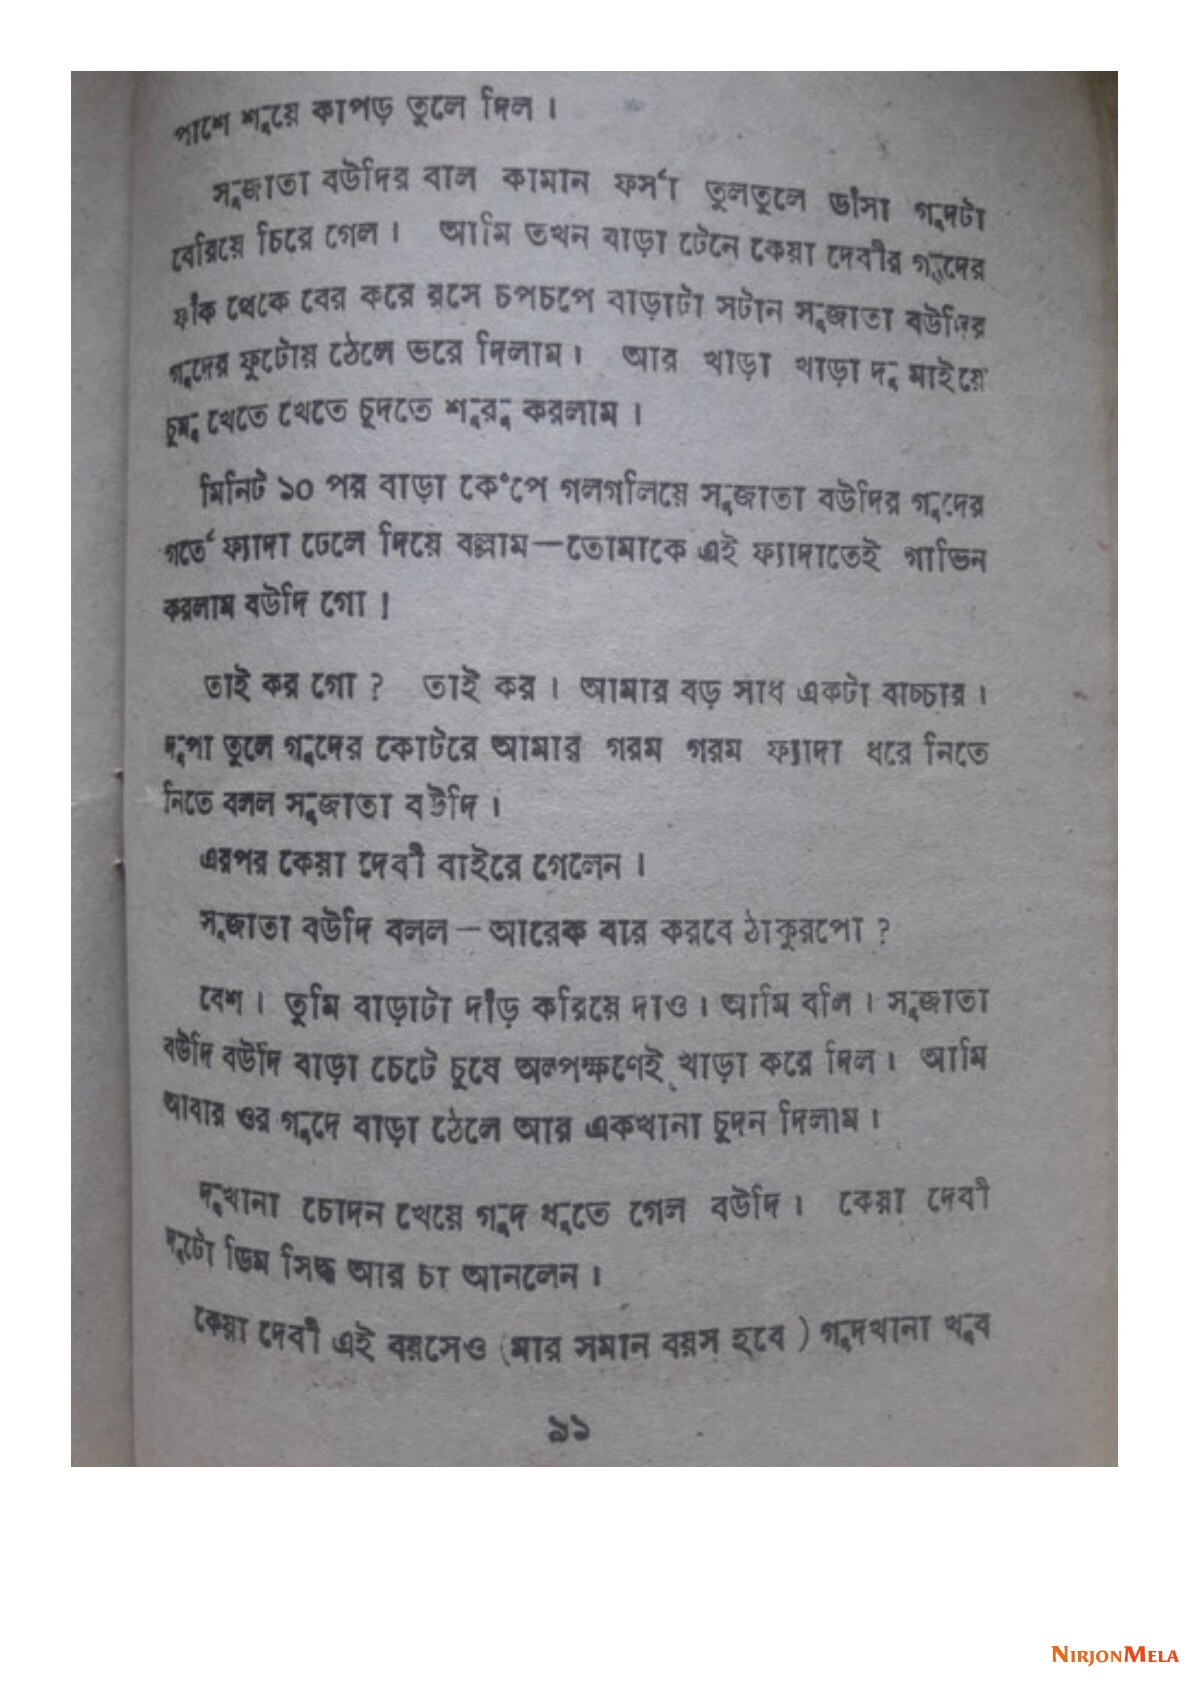 পাশে শুয়ে কাপড় তুলে দিল।
সুজাতা বউদির বাল কামান ফর্সা তুলতুলে ডাঁসা গুদটা
বেরিয়ে চিরে গেল। আমি তখন বাড়া টেনে কেয়া দেবীর গুদের
ফাঁক থেকে বের করে রসে চপচপে বাড়াটা সটান সুজাতা বউদির
গুদের ফুটোয় ঠেলে ভরে দিলাম। আর খাড়া খাড়া দু মাইয়ে
চুমু খেতে খেতে চুদতে শুরু করলাম।
মিনিট ১০ পর বাড়া কেঁপে গলগলিয়ে সুজাতা বউদির গুদের
গর্তে ফ্যাদা ঢেলে দিয়ে বল্লাম—তোমাকে এই ফ্যাদাতেই গাভিন
করলাম বউদি গো!
তাই কর গো? তাই কর। আমার বড় সাধ একটা বাচ্চার।
দুপা তুলে গুদের কোটরে আমার গরম গরম ফ্যাদা ধরে নিতে
নিতে বলল সুজাতা বউদি।
এরপর কেয়া দেবী বাইরে গেলেন।
সুজাতা বউদি বলল—আরেক বার করবে ঠাকুরপো?
বেশ। তুমি বাড়াটা দাঁড় করিয়ে দাও। আমি বলি। সুজাতা
বউদি বউদি বাড়া চেটে চুষে অল্পক্ষণেই খাড়া করে দিল। আমি
আবার ওর গুদে বাড়া ঠেলে আর একখানা চুদন দিলাম।
দুখানা চোদন খেয়ে গুদ ধুতে গেল বউদি। কেয়া দেবী
দুটো ডিম সিদ্ধ আর চা আনলেন।
কেয়া দেবী এই বয়সেও (মার সমান বয়স হবে) গুদখানা খুব
৯১
NIRJONMELA